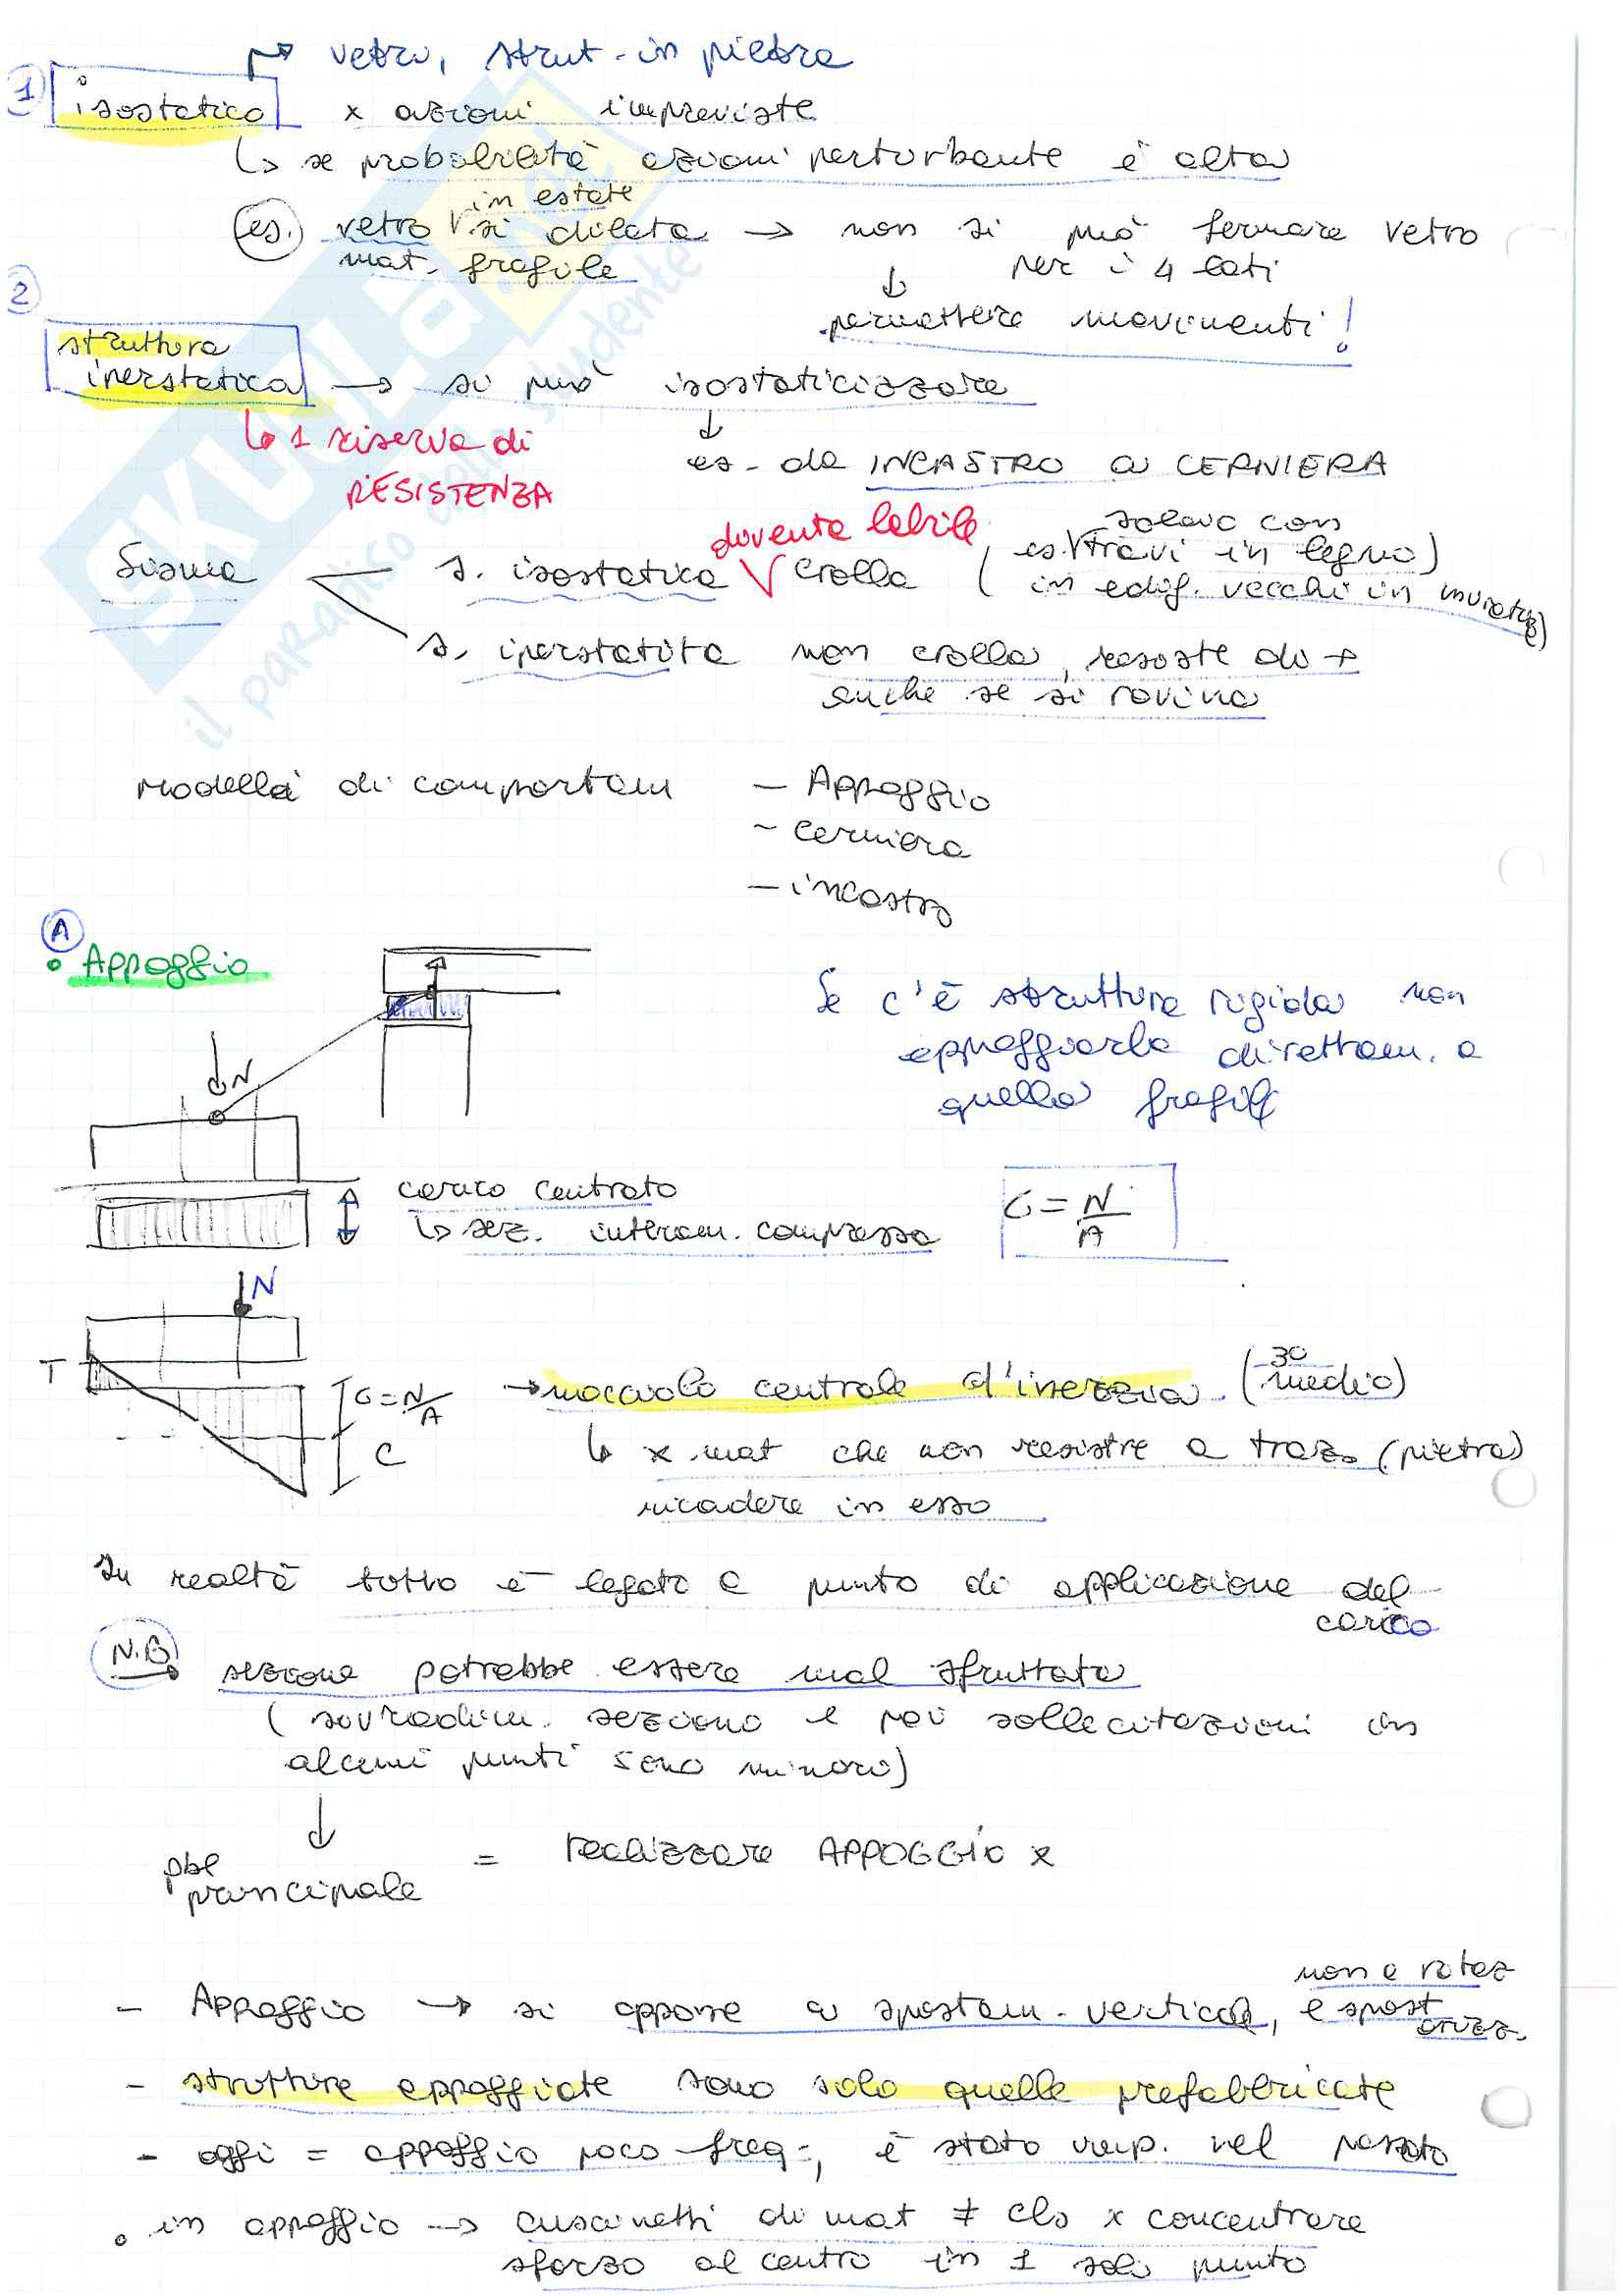 → vetro, strut. in pietra
1 isostatico x azioni impreviste
↳ se probabilità azioni perturbante è alta
es. vetro in estate si dilata → non si può fermare vetro
mat. fragile per i 4 lati
↓
permettere movimenti!
2
struttura
iperstatica → si può isostaticizzare
↳ 1 riserva di ↓
RESISTENZA es - da INCASTRO a CERNIERA
Sisma s. isostatica diventa labile crolla (es. solaio con travi in legno)
(in edif. vecchi in muratura)
s. iperstatica non crolla, resiste di +
anche se si rovina
Modelli di comportam - Appoggio
- cerniera
- incastro
A
• Appoggio
Se c'è struttura rigida non
appoggiarla direttam. a
quella fragile
N
carico centrato
↳ sez. interam. compressa
σ = N/A
N
T
σ = N/A → nocciolo centrale d'inerzia (3° medio)
C ↳ x mat che non resistre a traz. (pietra)
ricadere in esso
In realtà tutto è legato a punto di applicazione del
carico
N.B. sezione potrebbe essere mal sfruttata
(sovradim. sezione e poi sollecitazioni in
alcuni punti sono minori)
↓
pbl
principale = realizzare APPOGGIO x
- Appoggio → si oppone a spostam. verticale, non a rotaz
e spost
orizz.
- strutture appoggiate sono solo quelle prefabbricate
- oggi = appoggio poco freq., è stato imp. nel passato
• in appoggio → cuscinetti di mat ≠ cls x concentrare
sforzo al centro in 1 solo punto
SKUOLA.net
il paradiso dello studente